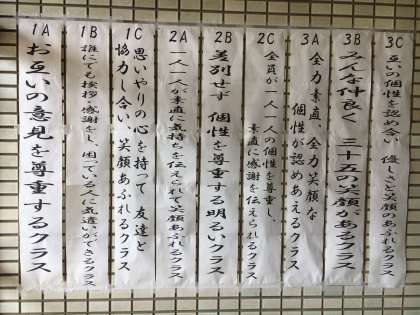 1A
お互いの意見を尊重するクラス
1B
誰にでも挨拶・感謝をし、困っている人に気遣いができるクラス
1C
思いやりの心を持って 友達と
協力し合い 笑顔あふれるクラス
2A
一人一人が素直に気持ちを伝えられて笑顔あふれるクラス
2B
差別せず 個性を尊重する明るいクラス
2C
全員が一人一人の個性を尊重し、
素直に感謝を伝えられるクラス
3A
全力素直、全力笑顔な
個性が認めあえるクラス
3B
みんな仲良く 三十五の笑顔があるクラス
3C
互いの個性を認め合い 優しさと笑顔のあふれるクラス